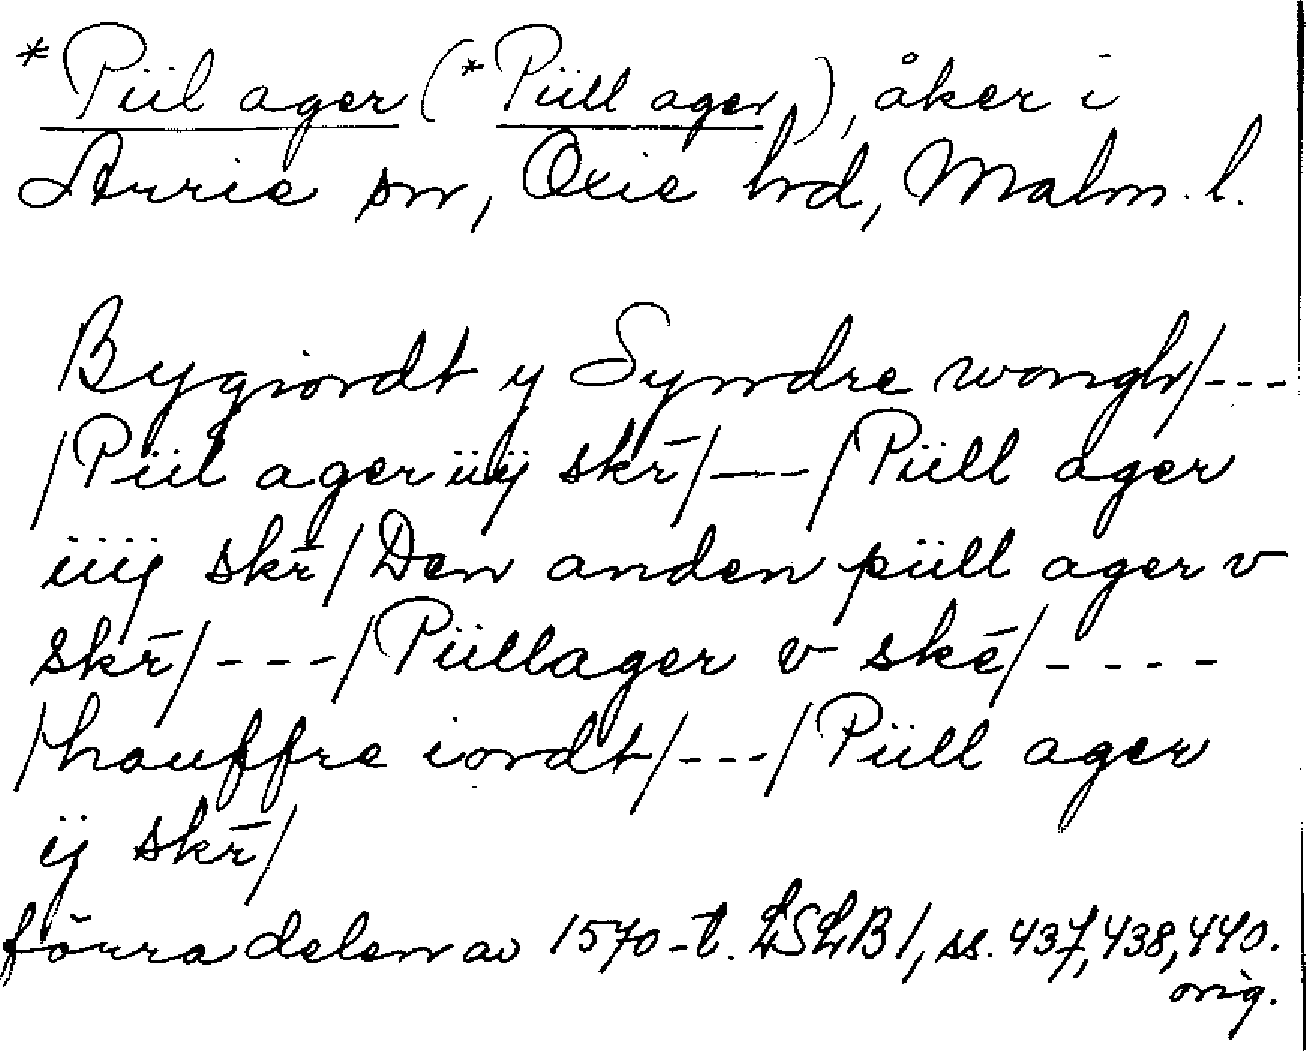 *Piil ager (*Piill ager), åker i
Arrie sn, Oxie hd, Malm. l.
Bygiordt y Syndre wongh/---
/Piil ager iiij skr̄/---/Piill ager
iiij skr̄/Den anden piill ager v
skr̄/---/Piillager v skē/----
/houffre iordt/---/Piill ager
ij skr̄/
förra delen av 1570-t. LSLB 1, ss. 437, 438, 440.
orig.